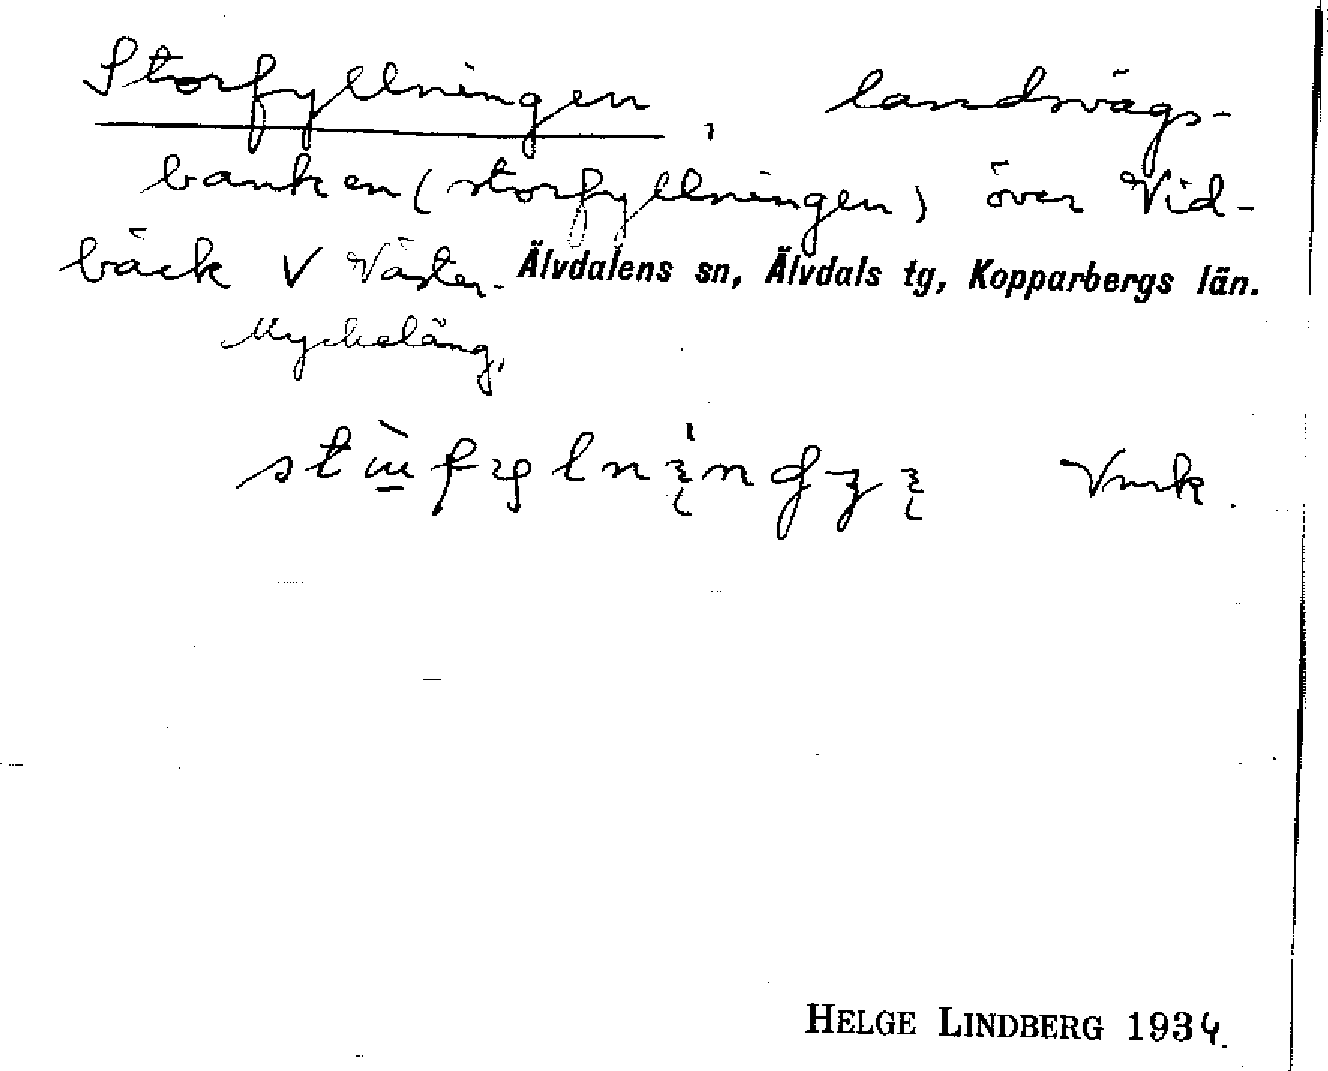 Storfyllningen, landsvägs-
banken (storfyllningen) över Vid-
bäck V Väster-
Älvdalens sn, Älvdals tg, Kopparbergs län.
Myckeläng,
Vmk.
HELGE LINDBERG 1934.